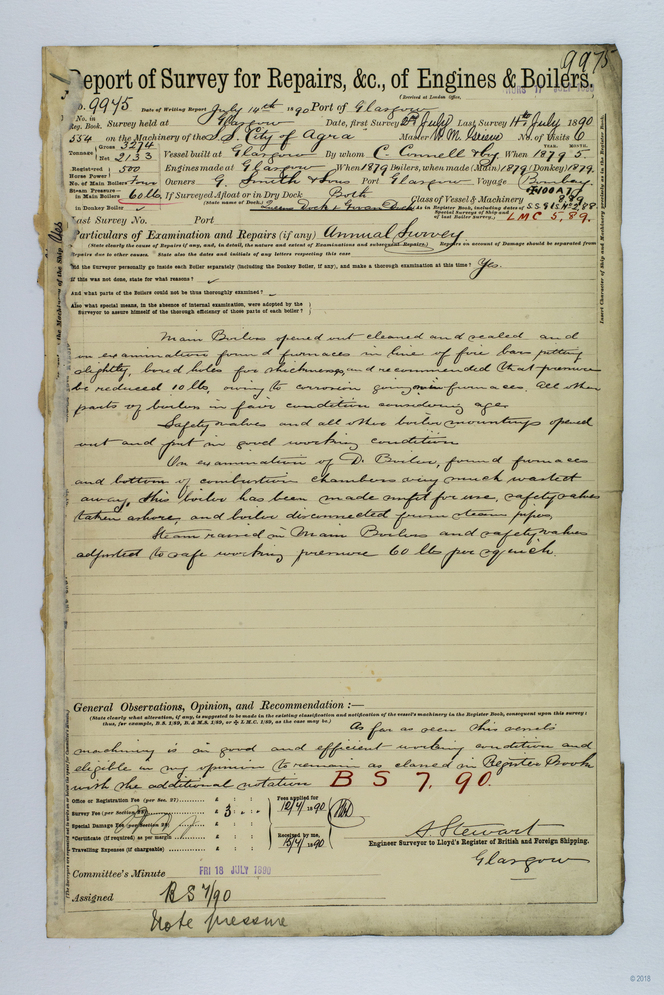 9975
Report of Survey for Repairs, &c., of Engines & Boilers.
(Received at London Office,
No. 9975 Date of Writing Report July 14th 1890 Port of Glasgow
No. in Reg. Book. Survey held at Glasgow Date, first Survey July Last Survey 11th July 1890
554 on the Machinery of the S.S. City of Agra Master No. of Visits 6
Tonnage Gross 3274 Net 2133 Vessel built at Glasgow By whom C. Connell & Co. When 1879 5
YEAR. MONTH.
Registered Horse Power 500 Engines made at Glasgow When 1879 Boilers, when made (Main) 1879 (Donkey) 1879
No. of Main Boilers Four Owners G. Smith & Sons Port Glasgow Voyage Bombay
Steam Pressure in Main Boilers 60 lbs. If Surveyed Afloat or in Dry Dock Both Class of Vessel & Machinery 100A1
in Donkey Boiler (State name of Dock.) Queen Dock & Govan Dock As in Register Book, including dates of Special Surveys of Ship and of last Boiler survey,
LMC 5.89.
Last Survey No. Port
Particulars of Examination and Repairs (if any) Annual Survey
(State clearly the cause of Repairs if any, and, in detail, the nature and extent of Examinations and subsequent Repairs.) Repairs on account of Damage should be separated from
Repairs due to other causes. State also the dates and initials of any letters respecting this case
Did the Surveyor personally go inside each Boiler separately (including the Donkey Boiler, if any), and make a thorough examination at this time? Yes.
If this was not done, state for what reasons?
And what parts of the Boilers could not be thus thoroughly examined?
Also what special means, in the absence of internal examination, were adopted by the
Surveyor to assure himself of the thorough efficiency of those parts of each boiler?
Insert Character of Ship and Machinery precisely as in the Register Book.
Main Boilers opened out cleaned and scaled and
on examination found furnaces in line of fire bars pitting
slightly, bored holes for thickness, and recommended that pressure
be reduced 10 lbs, owing to corrosion going on in furnaces. All other
parts of boilers in fair condition considering age.
Safety valves and all other boiler mountings opened
out and put in good working condition
On examination of D. Boiler, found furnaces
and bottom of combustion chambers very much wasted
away, this boiler has been made unfit for use, safety valves
taken ashore, and boiler disconnected from steam pipes.
Steam raised in Main Boilers and safety valves
adjusted to safe working pressure 60 lbs per sq inch.
General Observations, Opinion, and Recommendation :—
(State clearly what alteration, if any, is suggested to be made in the existing classification and notification of the vessel's machinery in the Register Book, consequent upon this survey:
thus, for example, B.S. 1/89, B. & M.S. 1/89, or L.M.C. 1/89, as the case may be.)
As far as seen this vessel's
machinery is in good and efficient working condition and
eligible in my opinion to remain as classed in Register Book
with the additional notation B S 7. 90.
Office or Registration Fee (per Sec. 27) £ : :
Survey Fee (per Section 28) £ 3 : - : -
Special Damage Fee (per Section 28) £ : :
*Certificate (if required) as per margin £ : :
Travelling Expenses (if chargeable) £ : :
Fees applied for
12/7/1890
Received by me,
15/7/1890
A. Stewart
Engineer Surveyor to Lloyd's Register of British and Foreign Shipping.
Glasgow
Committee's Minute FRI 18 JULY 1890
Assigned BS 7/90
Note pressure
© 2018